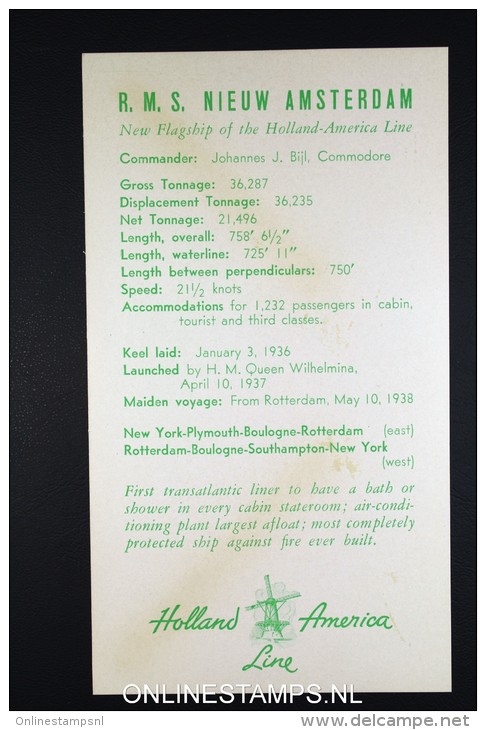 R. M. S. NIEUW AMSTERDAM
New Flagship of the Holland-America Line
Commander: Johannes J. Bijl, Commodore
Gross Tonnage: 36,287
Displacement Tonnage: 36,235
Net Tonnage: 21,496
Length, overall: 758′ 6½″
Length, waterline: 725′ 11″
Length between perpendiculars: 750′
Speed: 21½ knots
Accommodations for 1,232 passengers in cabin,
tourist and third classes.
Keel laid: January 3, 1936
Launched by H. M. Queen Wilhelmina,
April 10, 1937
Maiden voyage: From Rotterdam, May 10, 1938
New York-Plymouth-Boulogne-Rotterdam (east)
Rotterdam-Boulogne-Southampton-New York
(west)
First transatlantic liner to have a bath or
shower in every cabin stateroom; air-condi-
tioning plant largest afloat; most completely
protected ship against fire ever built.
Holland America
Line
ONLINESTAMPS.NL
Onlinestampsnl
delcampe.net